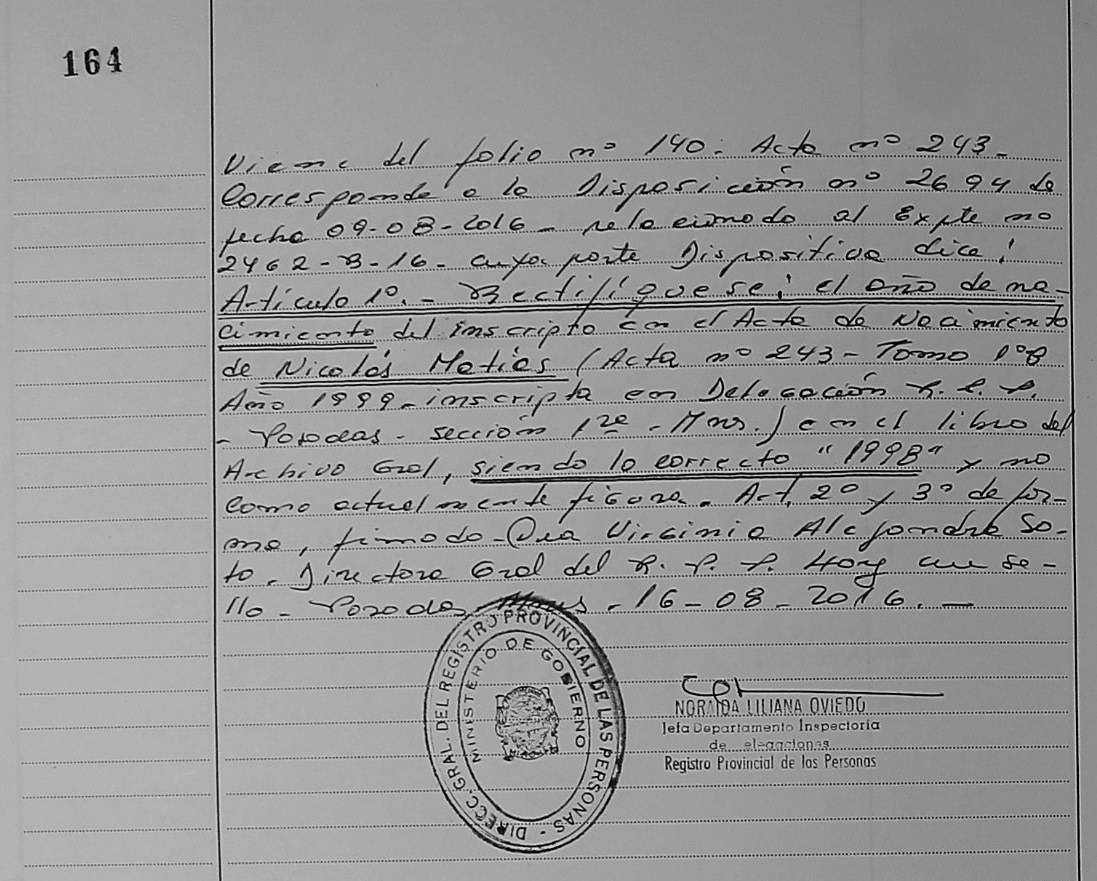 164
Viene del folio nº 140. Acta nº 243.-
Corresponde a la Disposición nº 2694 de
fecha 09-08-2016 - relacionado al Expte nº
2462-B-16- cuya parte Dispositiva dice:
Artículo 1º.- Rectifíquese: el año de na-
cimiento del inscripto en el Acta de Nacimiento
de Nicolás Matías (Acta nº 243 - Tomo 1ºB
Año 1999 - inscripta en Delegación R.P.P.
- Posadas - sección 1ra - Mnes.) en el libro del
Archivo Gral, siendo lo correcto "1998" y no
como actualmente figura. Art. 2º y 3º de for-
ma, firmado - Dra Virginia Alejandra So-
to. Directora Gral del R.P.P. Hay un se-
llo - Posadas, Mnes, -16-08-2016.-
DIRECC. GRAL. DEL REGISTRO PROVINCIAL DE LAS PERSONAS -
MINISTERIO DE GOBIERNO
NORAIDA LILIANA OVIEDO
Jefa Departamento Inspectoria
de elegaciones
Registro Provincial de las Personas